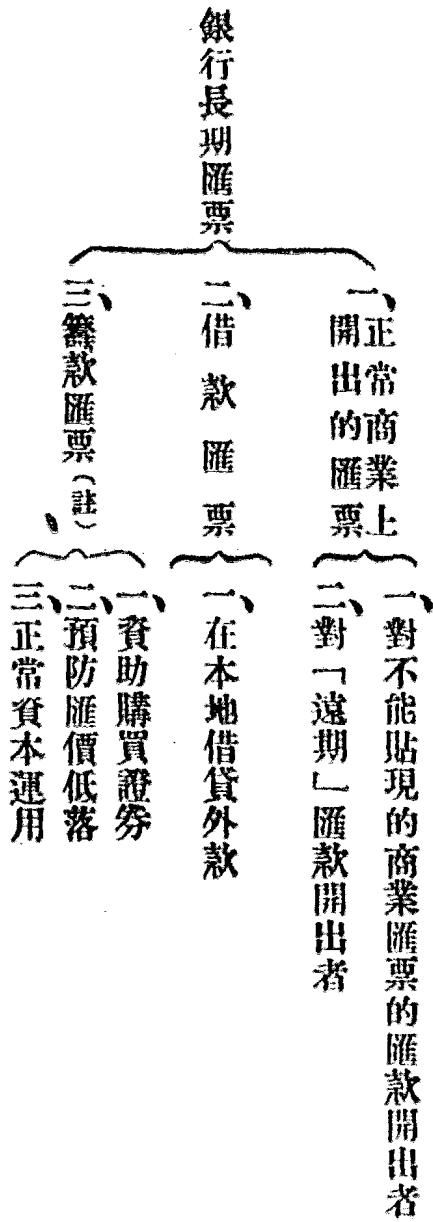 銀行長期匯票
一、正常商業上
開出的匯票
一、對不能貼現的商業匯票的匯款開出者
二、對「遠期」匯款開出者
二、借款匯票
一、在本地借貸外款
三、籌款匯票(註)
一、資助購買證券
二、預防匯價低落
三、正常資本運用